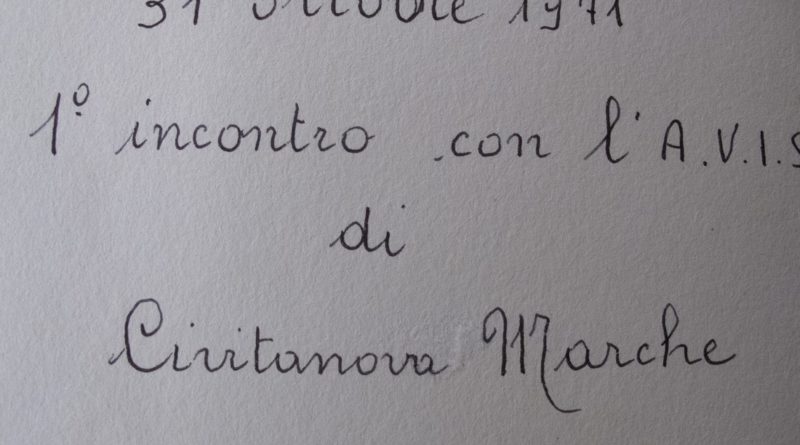 31 Ottobre 1971
1º incontro con l'A.V.I.S
di
Civitanova Marche